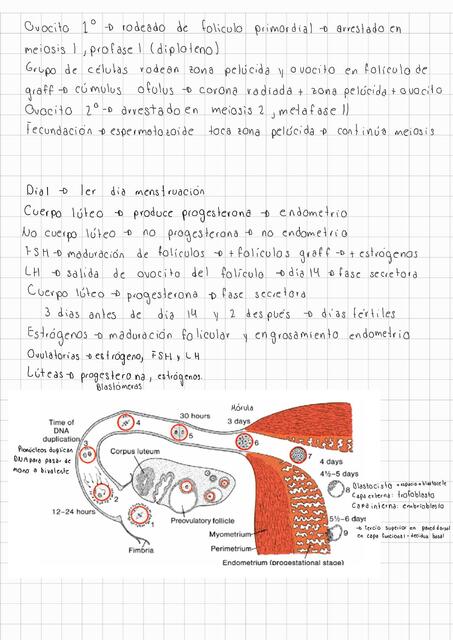 Ovocito 1° → rodeado de folículo primordial → arrestado en
meiosis 1, profase 1 (diploteno)
Grupo de células rodean zona pelúcida y ovocito en folículo de
graff → cúmulus ofolus → corona radiada + zona pelúcida + ovocito
Ovocito 2° → arrestado en meiosis 2, metafase II
Fecundación → espermatozoide toca zona pelúcida → continúa meiosis
Día1 → 1er día menstruación
Cuerpo lúteo → produce progesterona → endometrio
No cuerpo lúteo → no progesterona → no endometrio
FSH → maduración de folículos → + folículos graff → + estrógenos
LH → salida de ovocito del folículo → día 14 → fase secretora
Cuerpo lúteo → progesterona → fase secretora
3 días antes de día 14 y 2 después → días fértiles
Estrógenos → maduración folicular y engrosamiento endometrio
Ovulatorias → estrógeno, FSH y LH
Lúteas → progesterona, estrógenos.
Blastómeras
30 hours
Mórula
3 days
Time of
DNA
duplication
4
5
6
7
3
Pronúcleos duplican
DNA para pasar de
mono a bivalente
Corpus luteum
4 days
4½–5 days
8
Blastocisto → espacio = blastocele
Capa externa: trofoblasto
Capa interna: embrioblasto
2
12–24 hours
1
Preovulatory follicle
5½–6 days
9
→ tercio superior en pared dorsal
en capa funcional - decidua basal
Myometrium
Fimbria
Perimetrium
Endometrium (progestational stage)